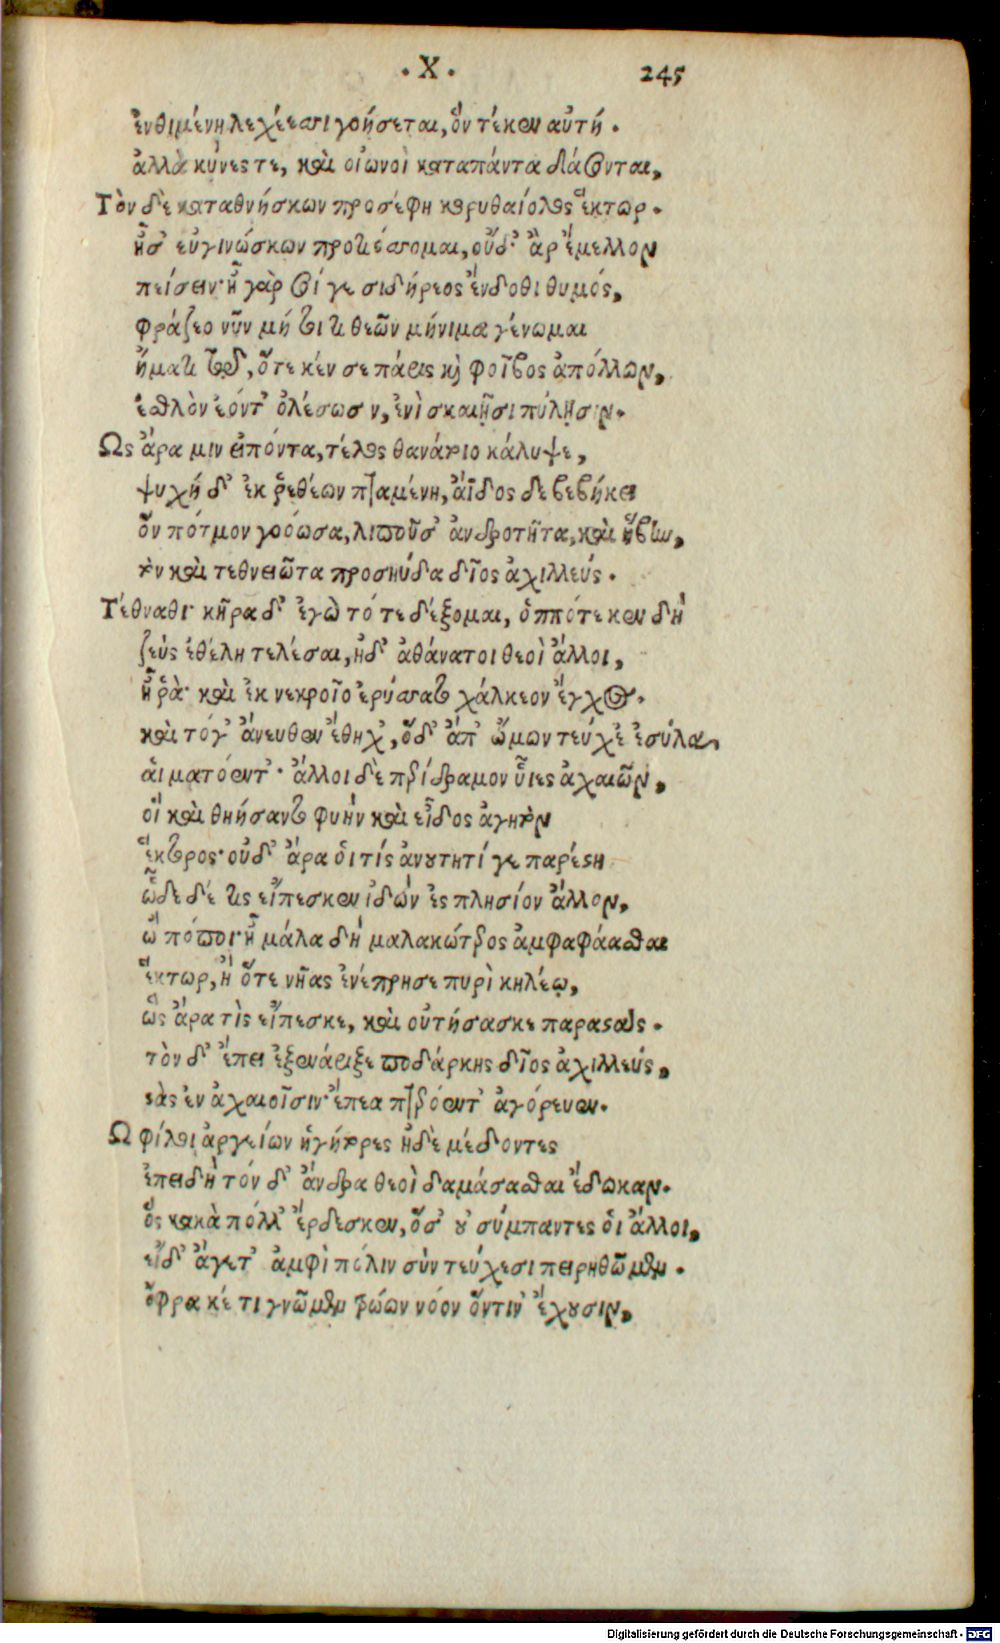 · X · 245
ἐνθεμένη λεχέεσσι γοήσεται, ὃν τέκεν αὐτή.
ἀλλὰ κύνες τε, καὶ οἰωνοὶ καταπάντα δάσονται,
Τὸν δὲ καταθνήσκων προσέφη κορυθαίολος ἕκτωρ.
ἦ σ' εὐγινώσκων προτιόσσομαι, οὐδ' ἂρ ἔμελλον
πείσειν· ἦ γὰρ σοί γε σιδήρεος ἔνδοθι θυμός,
φράζεο νῦν μή τοι τι θεῶν μήνιμα γένωμαι
ἤματι τῷ, ὅτε κέν σε πάρις καὶ φοῖβος ἀπόλλων,
ἐσθλὸν ἐόντ' ὀλέσωσιν, ἐνὶ σκαιῇσι πύλῃσιν.
Ως ἄρα μιν εἰπόντα, τέλος θανάτοιο κάλυψε,
ψυχή δ' ἐκ ῥεθέων πταμένη, ἄϊδος δε βεβήκει
ὃν πότμον γοόωσα, λιποῦσ' ἀνδροτῆτα, καὶ ἥβην,
τὸν καὶ τεθνειῶτα προσηύδα δῖος ἀχιλλεύς.
Τέθναθι· κῆρα δ' ἐγὼ τότε δέξομαι, ὁππότε κεν δὴ
ζεὺς ἐθέλη τελέσαι, ἠδ' ἀθάνατοι θεοὶ ἄλλοι,
ἦ ῥὰ· καὶ ἐκ νεκροῖο ἐρύσσατο χάλκεον ἔγχος.
καὶ τόγ' ἄνευθεν ἔθηχ', ὅδ' ἀπ' ὤμων τεύχε' ἐσύλα,
αἱματόεντ'· ἄλλοι δὲ περίδραμον ὗιες ἀχαιῶν,
οἳ καὶ θηήσαντο φυὴν καὶ εἶδος ἀγητὸν
ἕκτορος· οὐδ' ἄρα οἱ τίς ἀνουτητί γε παρέστη
ὧδε δέ τις εἴπεσκεν ἰδὼν ἐς πλησίον ἄλλον,
ὢ πόποι· ἦ μάλα δὴ μαλακώτερος ἀμφαφάασθαι
ἕκτωρ, ἢ ὅτε νῆας ἐνέπρησε πυρὶ κηλέῳ,
ὣς ἄρα τὶς εἴπεσκε, καὶ οὐτήσασκε παραστάς.
τὸν δ' ἔπει ἐξενάριξε ποδάρκης δῖος ἀχιλλεύς,
στὰς ἐν ἀχαιοῖσιν ἔπεα πτερόεντ' ἀγόρευεν.
Ω φίλοι ἀργείων ἡγήτορες ἠδὲ μέδοντες
ἐπειδὴ τόν δ' ἄνδρα θεοὶ δαμάσασθαι ἔδωκαν.
ὃς κακὰ πόλλ' ἔρδεσκεν, ὅσ' οὐ σύμπαντες οἱ ἄλλοι,
εἰ δ' ἄγετ' ἀμφὶ πόλιν σὺν τεύχεσι πειρηθῶμεν.
ὄφρα κέ τι γνῶμεν τρώων νόον ὅντιν' ἔχουσιν,
Digitalisierung gefördert durch die Deutsche Forschungsgemeinschaft - DFG